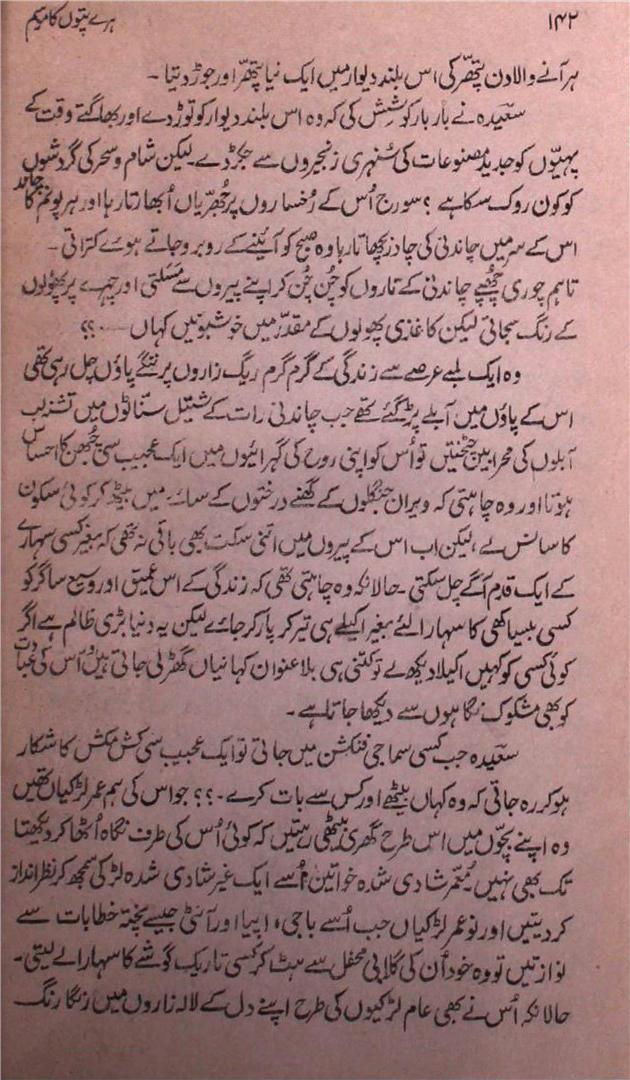 ۱۴۲
ہرے پتوں کا موسم
ہر آنے والا دن پتھر کی اس بلند دیوار میں ایک نیا پتھر اور جوڑ دیتا ۔
سعیدہ نے بار بار کوشش کی کہ وہ اس بلند دیوار کو توڑ دے اور بھاگتے وقت کے
پہیوں کو جدید مصنوعات کی سُنہری زنجیروں سے جکڑ دے۔ لیکن شام و سحر کی گردشوں
کو کون روک سکا ہے ؟ سورج اُس کے رُخساروں پر جُھرّیاں اُبھارتا رہا اور ہر پونم کا چاند
اس کے سر میں چاندنی کی چادر بچھاتا رہا وہ صبح کو آئینے کے روبرو جاتے ہوئے کتراتی ۔
تاہم چوری چُھپے چاندنی کے تاروں کو چُن چُن کر اپنے پیروں سے مسلتی اور چہرے پر پھولوں
کے رنگ سجاتی لیکن کاغذی پھولوں کے مقدّر میں خوشبوئیں کہاں ۔۔۔۔ ؟؟
وہ ایک لمبے عرصے سے زندگی کے گرم گرم ریگ زاروں پر ننگے پاؤں چل رہی تھی
اس کے پاؤں میں آبلے پڑ گئے تھے جب چاندنی رات کے شیتل سنّاٹوں میں تشذیب
آبلوں کی محرابیں چٹخنیں تو اُس کو اپنی روح کی گہرائیوں میں ایک عجیب سی چُبھن کا احساس
ہوتا اور وہ چاہتی کہ ویران جنگلوں کے گھنے درختوں کے سائے میں بیٹھ کر کوئی سکون
کا سانس لے ، لیکن اب اس کے پیروں میں اتنی سکت بھی باقی نہ تھی کہ بغیر کسی سہارے
کے ایک قدم آگے چل سکتی ۔ حالانکہ وہ چاہتی تھی کہ زندگی کے اس عمیق اور وسیع ساگر کو
کسی بیساکھی کا سہارا لئے بغیر اکیلے ہی تیر کر پار کر جائے لیکن یہ دنیا بڑی ظالم ہے اگر
کوئی کسی کو کہیں اکیلا دیکھ لے تو کتنی ہی بلا عنوان کہانیاں گھڑ لی جاتی ہیں اُس کی عبادت
کو بھی مشکوک نگاہوں سے دیکھا جاتا ہے ۔
سعیدہ جب کسی سماجی فنکشن میں جاتی تو ایک عجیب سی کش مکش کا شکار
ہو کر رہ جاتی کہ وہ کہاں بیٹھے اور کس سے بات کرے ۔ ؟؟ جو اس کی ہم عمر لڑکیاں تھیں
وہ اپنے بچّوں میں اس طرح گھری بیٹھی رہتیں کہ کوئی اُس کی طرف نگاہ اُٹھا کر دیکھتا
تک بھی نہیں معمّر شادی شدہ خواتین اُسے ایک غیر شادی شدہ لڑکی سمجھ کر نظر انداز
کر دیتیں اور نو عمر لڑکیاں جب اُسے باجی ، اپیا اور آنٹی جیسے پختہ خطابات سے
نوازتیں تو وہ خود اُن کی گلابی محفل سے ہٹ کر کسی تاریک گوشے کا سہارا لے لیتی ۔
حالانکہ اُس نے بھی عام لڑکیوں کی طرح اپنے دل کے لالہ زاروں میں رنگا رنگ